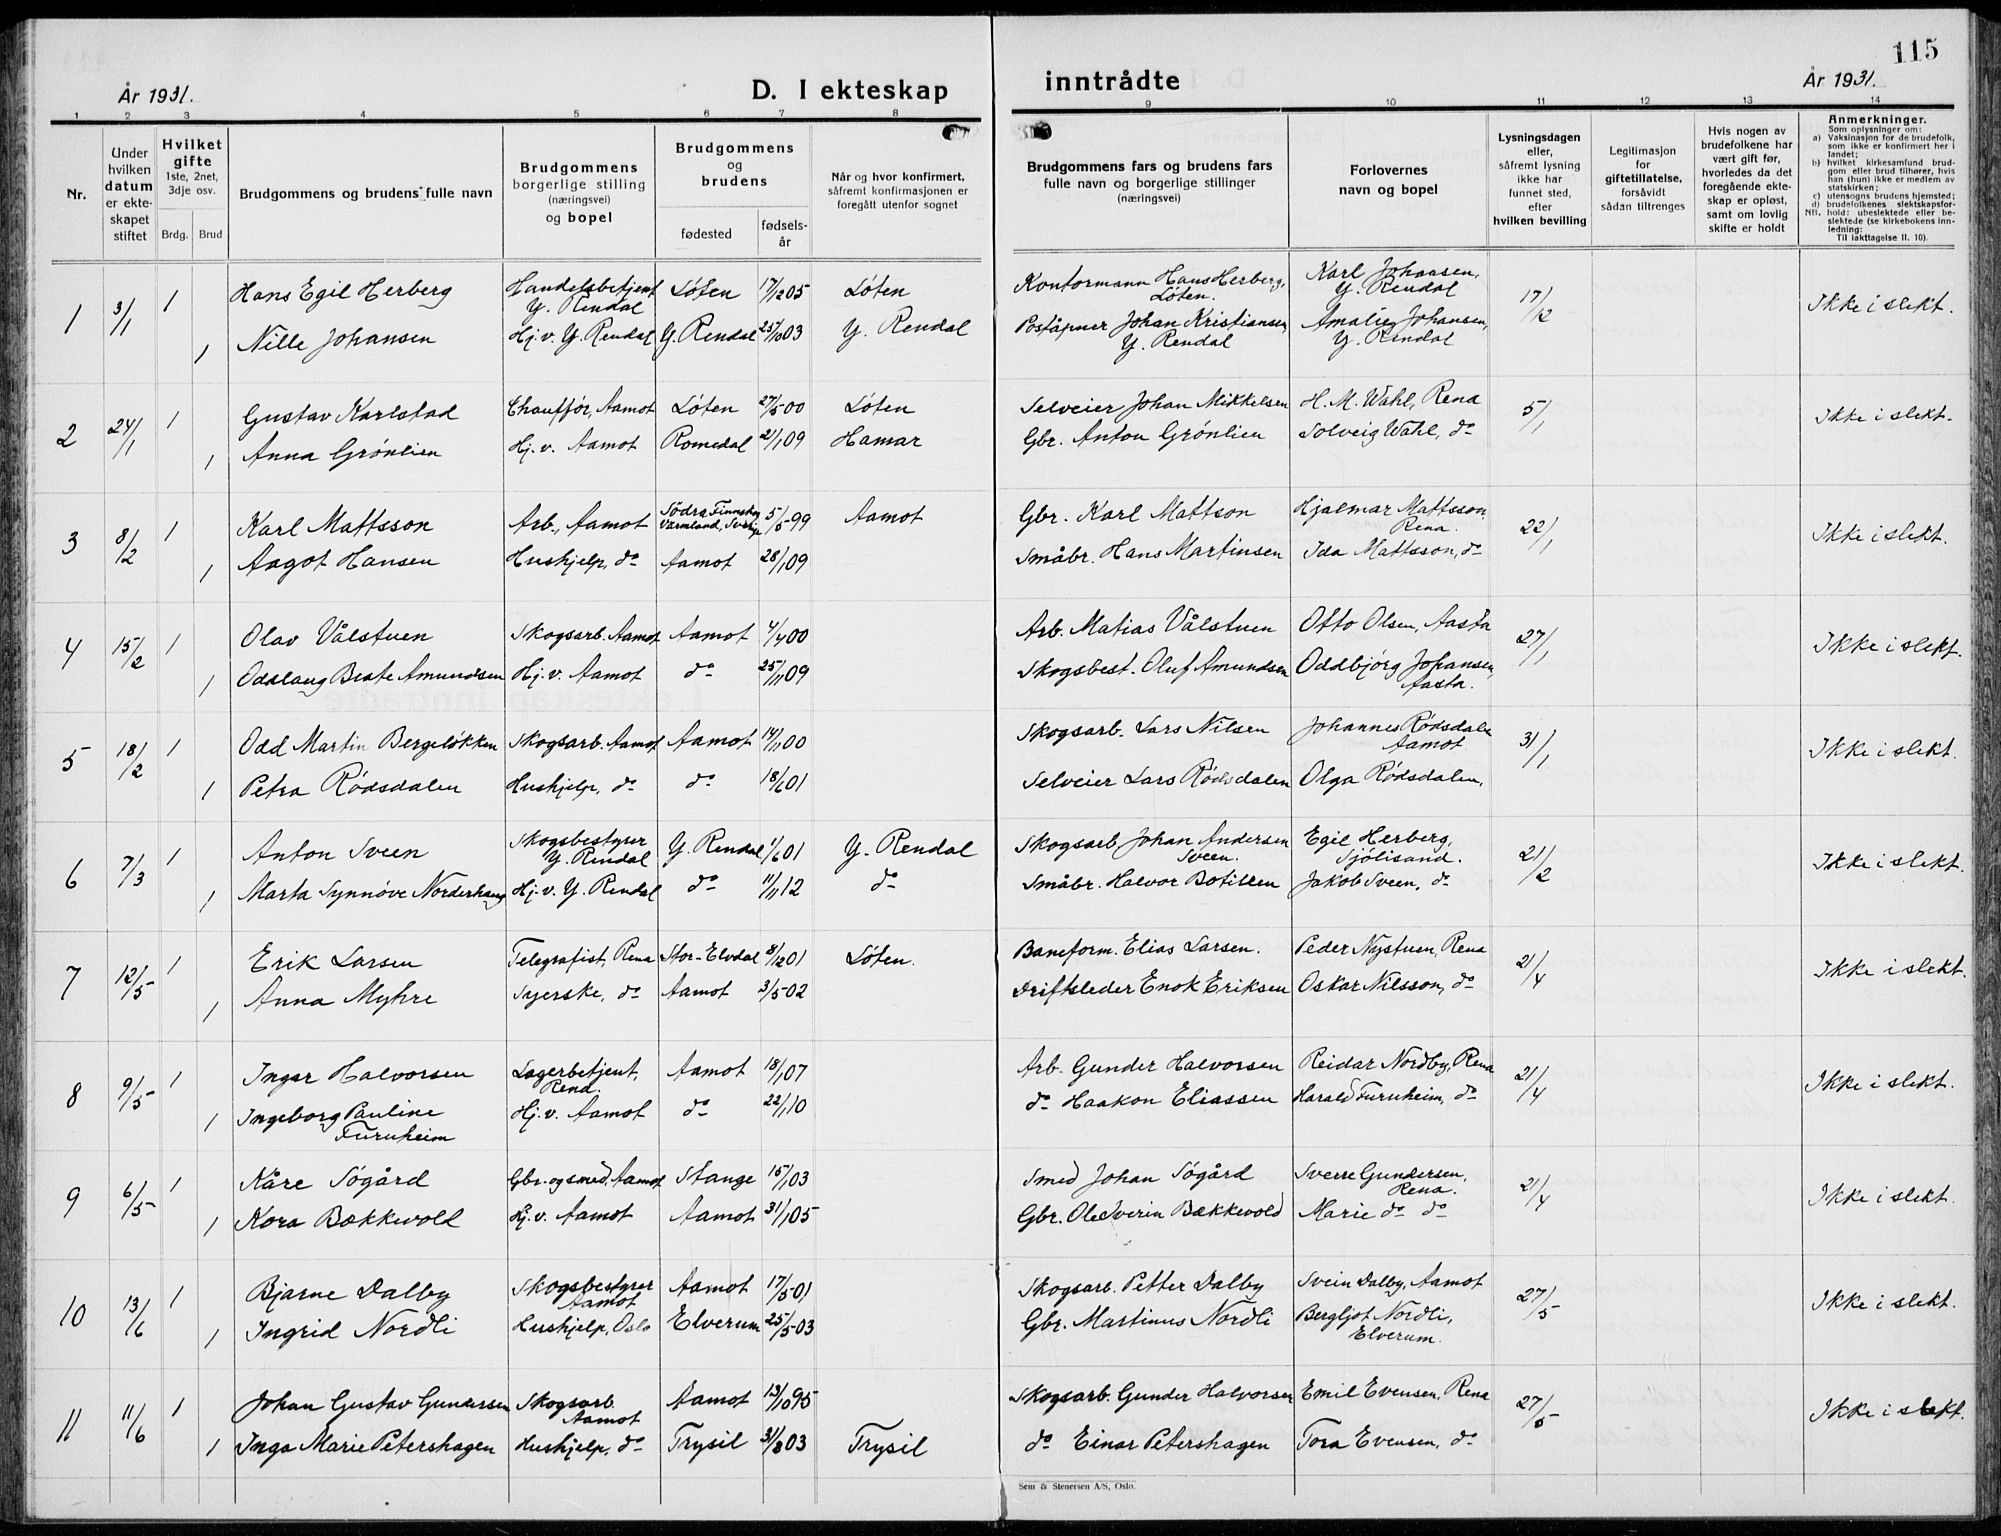 115
År 1931.
D. I ekteskap inntrådte
År 1931.
1 2 3 4 5 6 7 8 9 10 11 12 13 14
Nr.
Under hvilken datum er ekteskapet stiftet
Hvilket gifte
1ste, 2net, 3dje osv.
Brdg. Brud
Brudgommens og brudens fulle navn
Brudgommens borgerlige stilling (næringsvei) og bopel
Brudgommens og brudens
fødested
fødselsår
Når og hvor konfirmert, såfremt konfirmasjonen er foregått utenfor sognet
Brudgommens fars og brudens fars fulle navn og borgerlige stillinger (næringsvei)
Forlovernes navn og bopel
Lysningsdagen eller, såfremt lysning ikke har funnet sted, efter hvilken bevilling
Legitimasjon for giftetillatelse, forsåvidt sådan tiltrenges
Hvis nogen av brudefolkene har vært gift før, hvorledes da det foregående ekteskap er opløst, samt om lovlig skifte er holdt
Anmerkninger.
Som oplysninger om:
a) Vaksinasjon for de brudefolk, som ikke er konfirmert her i landet;
b) hvilket kirkesamfund brudgom eller brud tilhører, hvis han (hun) ikke er medlem av statskirken;
c) utensogns brudens hjemsted;
d) brudefolkenes slektskapsforhold: ubeslektede eller beslektede (se kirkebokens innledning:
NB.
Til iakttagelse II. 10).
1 3/1 1 Hans Egil Herberg Handelsbetjent Y. Rendal Løten 17/12 05 Løten Kontormann Hans Herberg, Løten. Karl Johansen, Y. Rendal 17/12 Ikke i slekt.
1 Nille Johansen Hj. v. Y. Rendal Y. Rendal 25/10 03 Y. Rendal Poståpner Johan Kristiansen Y. Rendal Amalie Johansen, Y. Rendal
2 24/1 1 Gustav Karlstad Chauffør, Aamot Løten 27/5 00 Løten Selveier Johan Mikkelsen H. M. Wahl, Rena 5/1 Ikke i slekt.
1 Anna Grønlien Hj. v. Aamot Romedal 21/1 09 Hamar Gbr. Anton Grønlien Solveig Wahl, do
3 8/2 1 Karl Mattsson Arb., Aamot Södra Finnskog Värmland, 5/5 99 Aamot Gbr. Karl Mattson Hjalmar Mattsson, Rena. 22/1 Ikke i slekt.
1 Aagot Hansen Hushjelp, do Aamot 28/1 09 Småbr. Hans Martinsen Ida Mattsson, do
4 15/2 1 Olav Vålstuen Skogsarb. Aamot Aamot 4/4 00 Arb. Matias Vålstuen Otto Olsen, Aasta 27/1 Ikke i slekt.
1 Oddlaug Beate Amundsen Hj. v. Aamot do 25/11 09 Skogsbest. Oluf Amundsen Oddbjørg Johansen, Aasta.
5 18/2 1 Odd Martin Bergeløkken Skogsarb. Aamot Aamot 14/11 00 Skogsarb. Lars Nilsen Johannes Rødsdalen Aamot 31/1 Ikke i slekt.
1 Petra Rødsdalen Hushjelp, do do 18/6 01 Selveier Lars Rødsdalen Olga Rødsdalen,
6 7/3 1 Anton Sveen Skogsbestyrer Y. Rendal Y. Rendal 1/6 01 Y. Rendal Skogsarb. Johan Andersen Sveen. Egil Herberg, Sjølisand. 21/2 Ikke i slekt.
1 Marta Synnøve Norderhaug Hj. v. Y. Rendal do 11/11 12 do Småbr. Halvor Botillen Jakob Sveen, do
7 12/5 1 Erik Larsen Telegrafist, Rena Stor-Elvdal 8/12 01 Løten. Baneform. Elias Larsen. Peder Nystuen, Rena 21/4 Ikke i slekt.
1 Anna Myhre Syerske, do Aamot 3/5 02 Driftsleder Enok Eriksen Oskar Nilsson, do
8 9/5 1 Ingar Halvorsen Lagerbetjent, Rena. Aamot 18/1 07 Arb. Gunder Halvorsen Reidar Nordby, Rena 21/4 Ikke i slekt.
1 Ingeborg Pauline Furuheim Hj. v. Aamot do 22/1 10 do Haakon Eliassen Harald Furuheim, do
9 6/5 1 Kåre Søgård Gbr. og smed, Aamot Stange 15/1 03 Smed Johan Søgård Sverre Gundersen, Rena. 21/4 Ikke i slekt.
1 Kora Bækkevold Hj. v. Aamot Aamot 31/1 05 Gbr. Ole Iverin Bækkevold Marie do do
10 13/6 1 Bjarne Dalby Skogsbestyrer Aamot Aamot 17/5 01 Skogsarb. Petter Dalby Svein Dalby, Aamot 27/5 Ikke i slekt.
1 Ingrid Nordli Hushjelp, Oslo Elverum 25/5 03 Gbr. Martinus Nordli Bergljot Nordli, Elverum.
11 11/6 1 Johan Gustav Gundersen Skogsarb. Aamot Aamot 13/10 95 Skogsarb. Gunder Halvorsen Emil Evensen, Rena 27/5 Ikke i slekt.
1 Inga Marie Petershagen Hushjelp, do Trysil 31/8 03 Trysil do Einar Petershagen Tora Evensen, do
Sem & Stenersen A/S, Oslo.